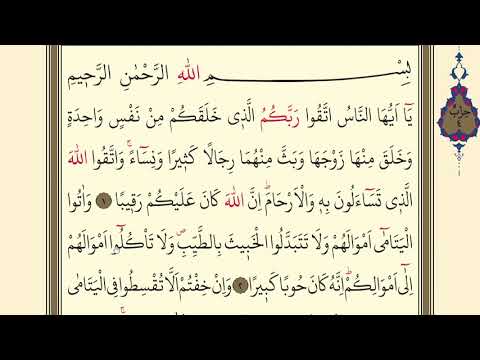 بِسْمِ اللهِ الرَّحْمٰنِ الرَّحٖيمِ
يَٓا اَيُّهَا النَّاسُ اتَّقُوا رَبَّكُمُ الَّذٖي خَلَقَكُمْ مِنْ نَفْسٍ وَاحِدَةٍ
وَخَلَقَ مِنْهَا زَوْجَهَا وَبَثَّ مِنْهُمَا رِجَالًا كَثٖيرًا وَنِسَٓاءًۚ وَاتَّقُوا اللهَ
الَّذٖي تَسَٓاءَلُونَ بِهٖ وَالْاَرْحَامَۜ اِنَّ اللهَ كَانَ عَلَيْكُمْ رَقٖيبًا ١ وَاٰتُوا
الْيَتَامٰٓى اَمْوَالَهُمْ وَلَا تَتَبَدَّلُوا الْخَبٖيثَ بِالطَّيِّبِۖ وَلَا تَأْكُلُٓوا اَمْوَالَهُمْ
اِلٰٓى اَمْوَالِكُمْۜ اِنَّهُ كَانَ حُوبًا كَبٖيرًا ٢ وَاِنْ خِفْتُمْ اَلَّا تُقْسِطُوا فِي الْيَتَامٰى
حِزْبٌ
٤